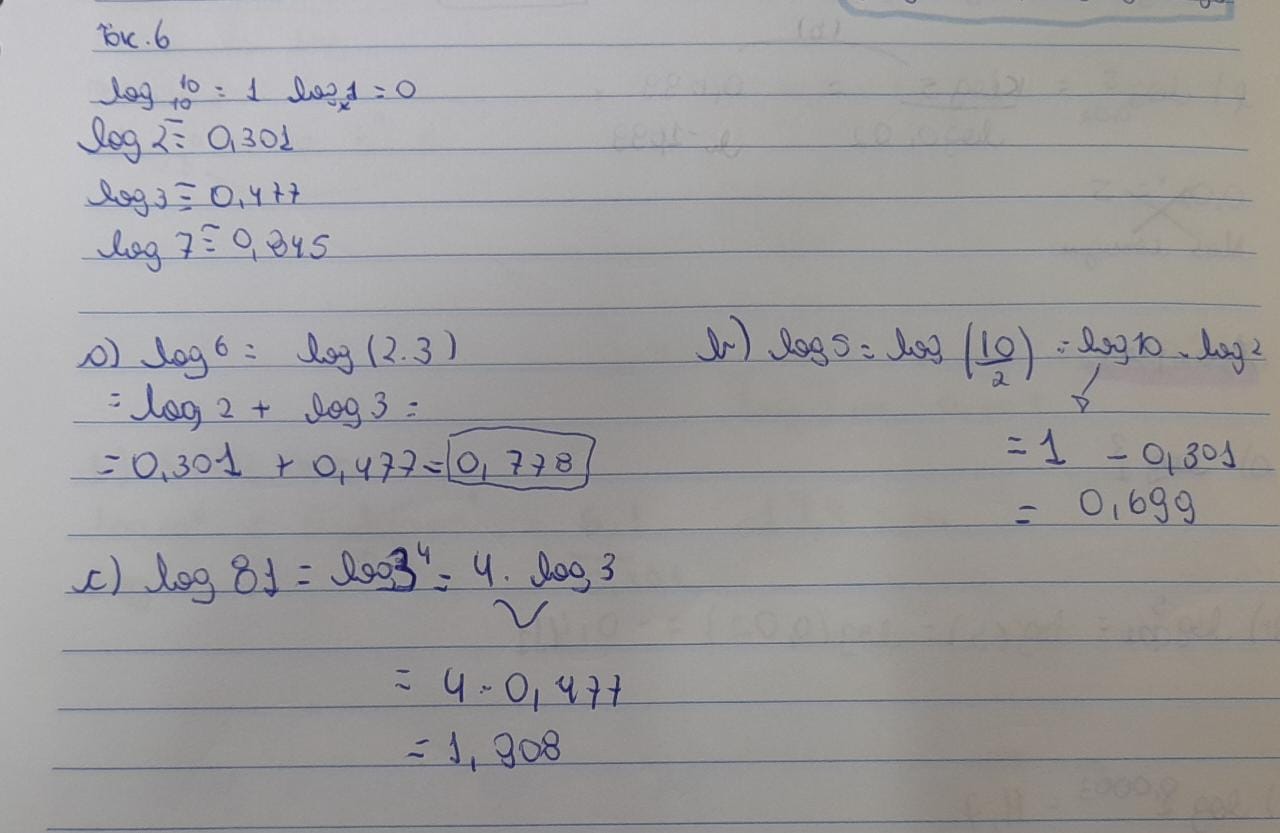 Ex. 6
log₁₀ 10 = 1 logₓ 1 = 0
log 2 ≅ 0,301
log 3 ≅ 0,477
log 7 ≅ 0,845
a) log 6 = log (2.3)
= log 2 + log 3 =
= 0,301 + 0,477 = 0,778
b) log 5 = log (10/2) = log 10 - log 2
= 1 - 0,301
= 0,699
c) log 81 = log 3⁴ = 4 . log 3
= 4 . 0,477
= 1,908